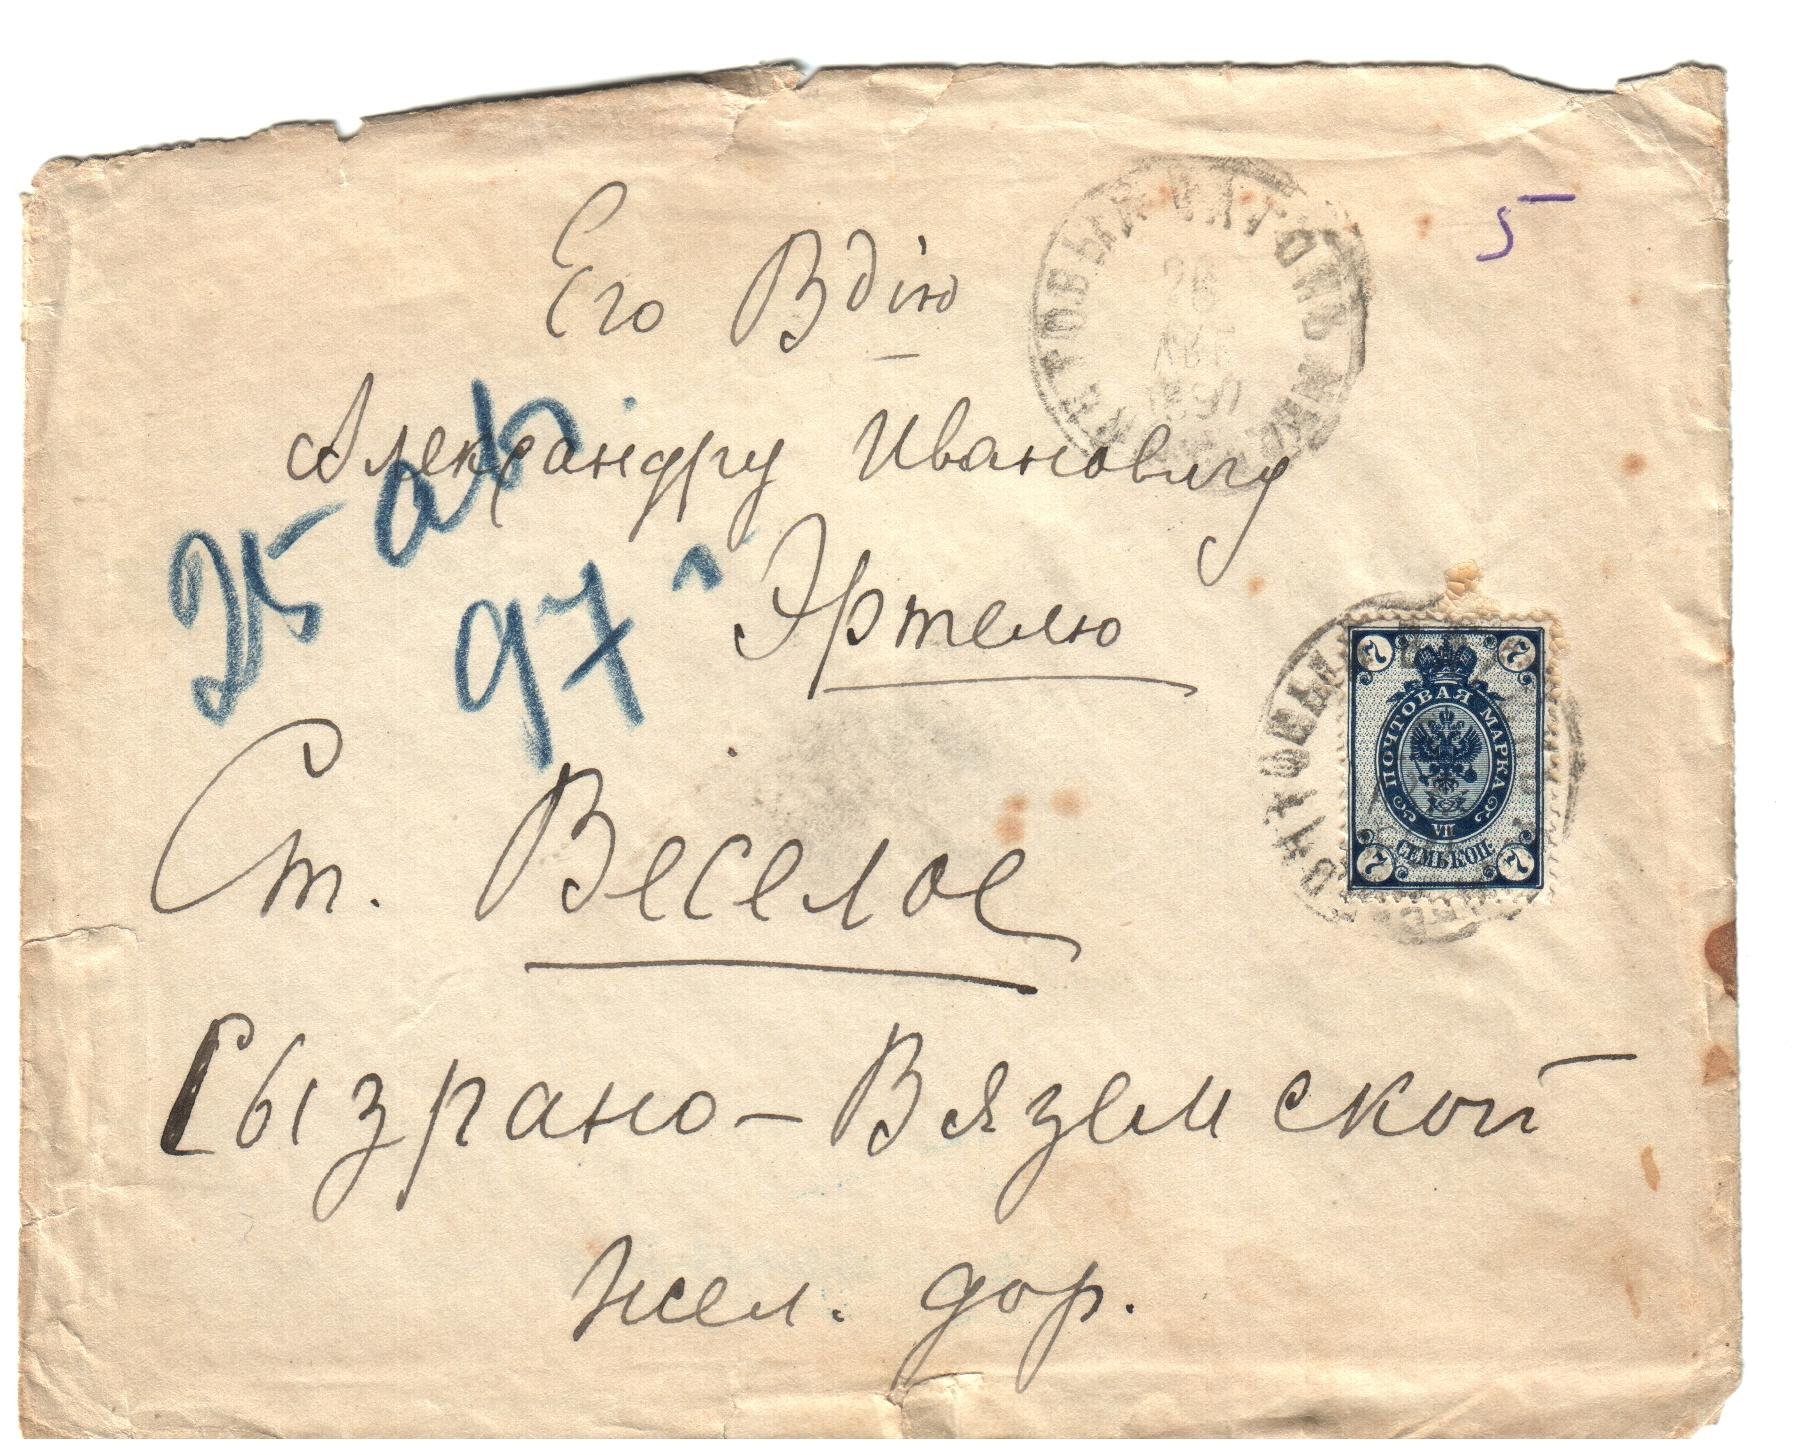 Его Вдію
Александру Ивановичу
Эртелю
25 авг
97 г
Ст. Веселое
Сызрано-Вяземской
жел. дор.
5
ПОЧТОВЫЙ ВАГОНЪ
26
АВГ
7 7
ПОЧТОВАЯ МАРКА
VII
СЕМЬ КОП.
7 7